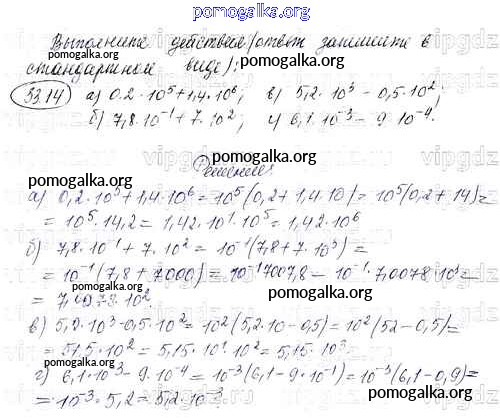 pomogalka.org
Выполните действия (ответ запишите в
стандартном виде):
pomogalka.org
33.14 а) 0.2·10⁵+1,4·10⁶; в) 5,2·10³ – 0,5·10²;
б) 7,8·10⁻¹+7·10²; г) 6,1·10⁻³ – 9·10⁻⁴.
pomogalka.org
Решение:
pomogalka.org
pomogalka.org
а) 0,2·10⁵+1,4·10⁶=10⁵(0,2+1,4·10)=10⁵(0,2+14)=
=10⁵·14,2=1,42·10¹·10⁵=1,42·10⁶
pomogalka.org
б) 7,8·10⁻¹+7·10²=10⁻¹(7,8+7·10³)=
=10⁻¹(7,8+7000)=10⁻¹7007,8=10⁻¹·7,0078·10³=
pomogalka.org
=7,0078·10²
pomogalka.org
в) 5,2·10³–0,5·10²=10²(5,2·10–0,5)=10²(52–0,5)=
=51,5·10²=5,15·10¹·10²=5,15·10³.
pomogalka.org
г) 6,1·10⁻³–9·10⁻⁴=10⁻³(6,1–9·10⁻¹)=10⁻³(6,1–0,9)=
=10⁻³·5,2=5,2·10⁻³
pomogalka.org